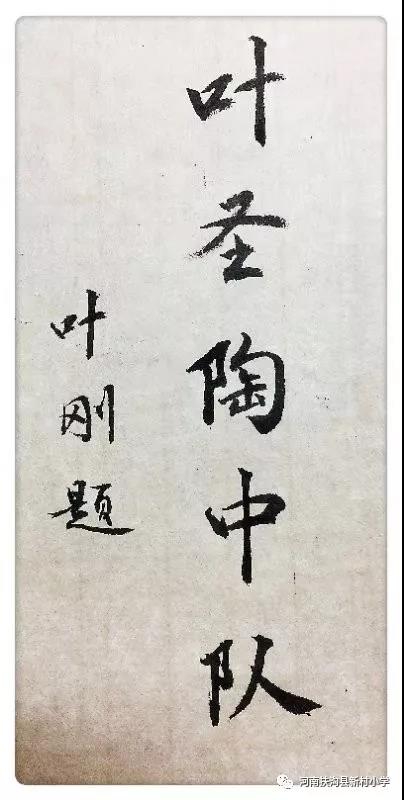 叶圣陶中队
叶刚题
河南扶沟县新村小学